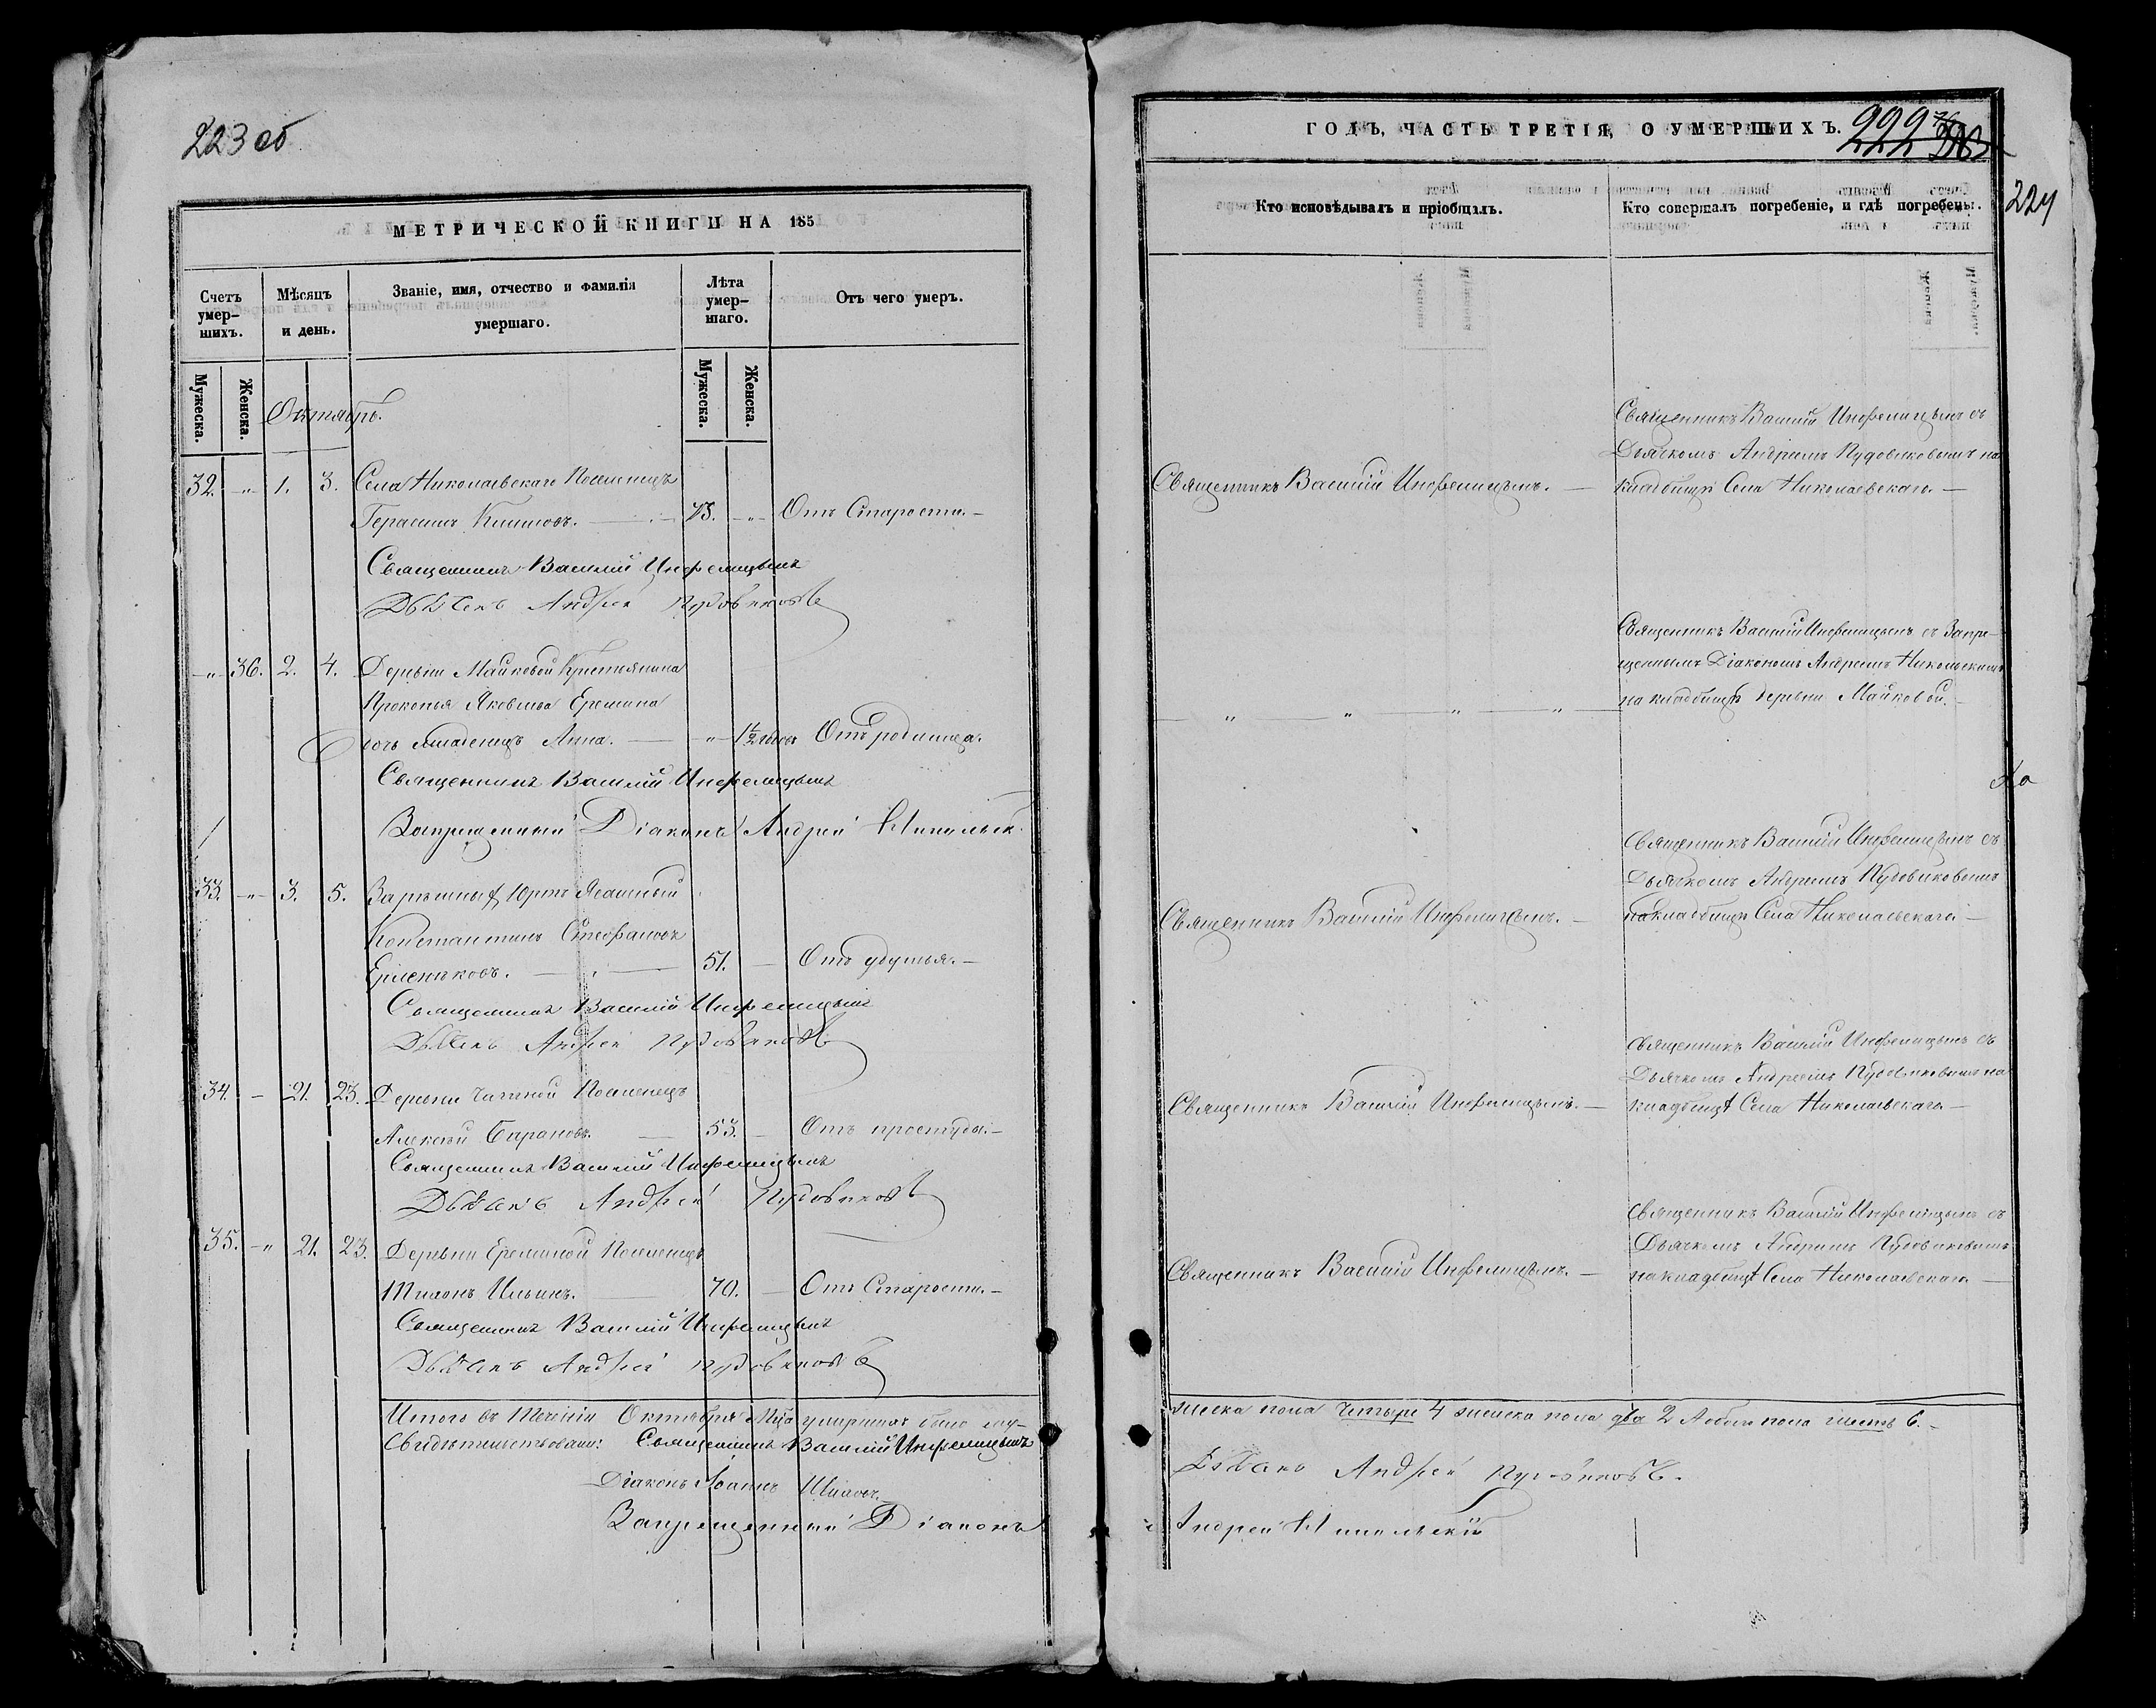 223 об
МЕТРИЧЕСКОЙ КНИГИ НА 185
Счетъ умер-
шихъ.
Мѣсяцъ
и день.
Званіе, имя, отчество и фамилія
умершаго.
Лѣта
умер-
шаго.
Отъ чего умеръ.
Мужеска.
Женска.
Мужеска.
Женска.
Октябрь.
32. -"- 1. 3. Села Николаевскаго Поселенецъ
Герасимъ 73. -"- Отъ Старости.-
Священникъ Василій Инфелицынъ
Дьячекъ Андрей Пудовиковъ
-"- 36. 2. 4. Деревни Майковой Крестьянина
Прокопья Яковлева Еремина
дочь младенецъ Анна. -"- 1½ года Отъ родимца.
Священникъ Василій Инфелицынъ
Запрещенный Діаконъ Андрей Никольск.
33. -"- 3. 5. Юртъ Ясашный
Константинъ Стефановъ
51. - Отъ удушья.-
Священникъ Василій Инфелицынъ
Дьячекъ Андрей Пудовиковъ
34. - 21. 23. Деревни Поселенецъ
Алексѣй Барановъ. 53. - Отъ простуды.-
Священникъ Василій Инфелицынъ
Дьячекъ Андрей Пудовиковъ
35. -"- 21. 23. Деревни Ереминой Поселенецъ
Ильинъ. 70. - Отъ Старости.-
Священникъ Василій Инфелицынъ
Дьячекъ Андрей Пудовиковъ
Итого въ теченіи Октября Мца умершихъ было му-
Свидѣтельствовали: Священникъ Василій Инфелицынъ
Діаконъ
Запрещенный Діаконъ
ГОДЪ, ЧАСТЬ ТРЕТІЯ, О УМЕРШИХЪ.
222
224
Кто исповѣдывалъ и пріобщалъ.
Кто совершалъ погребеніе, и гдѣ погребены.
Священникъ Василій Инфелицынъ съ
Дьячкомъ Андреемъ Пудовиковымъ на
Священникъ Василій Инфелицынъ.- кладбищѣ Села Николаевскаго.-
Священникъ Василій Инфелицынъ съ Запре-
щеннымъ Діакономъ Андреемъ Никольскимъ
на кладбищѣ деревни Майковой.-
Священникъ Василій Инфелицынъ съ
Дьячкомъ Андреемъ Пудовиковымъ
Священникъ Василій Инфелицынъ.- на кладбищѣ Села Николаевскаго.-
Священникъ Василій Инфелицынъ съ
Дьячкомъ Андреемъ Пудовиковымъ на
Священникъ Василій Инфелицынъ.- кладбищѣ Села Николаевскаго.-
Священникъ Василій Инфелицынъ съ
Дьячкомъ Андреемъ Пудовиковымъ
Священникъ Василій Инфелицынъ.- на кладбищѣ Села Николаевскаго.-
жеска пола четыре 4 женска пола два 2 А обоего пола шесть 6.-
Дьячекъ Андрей Пудовиковъ.
Андрей Никольскій